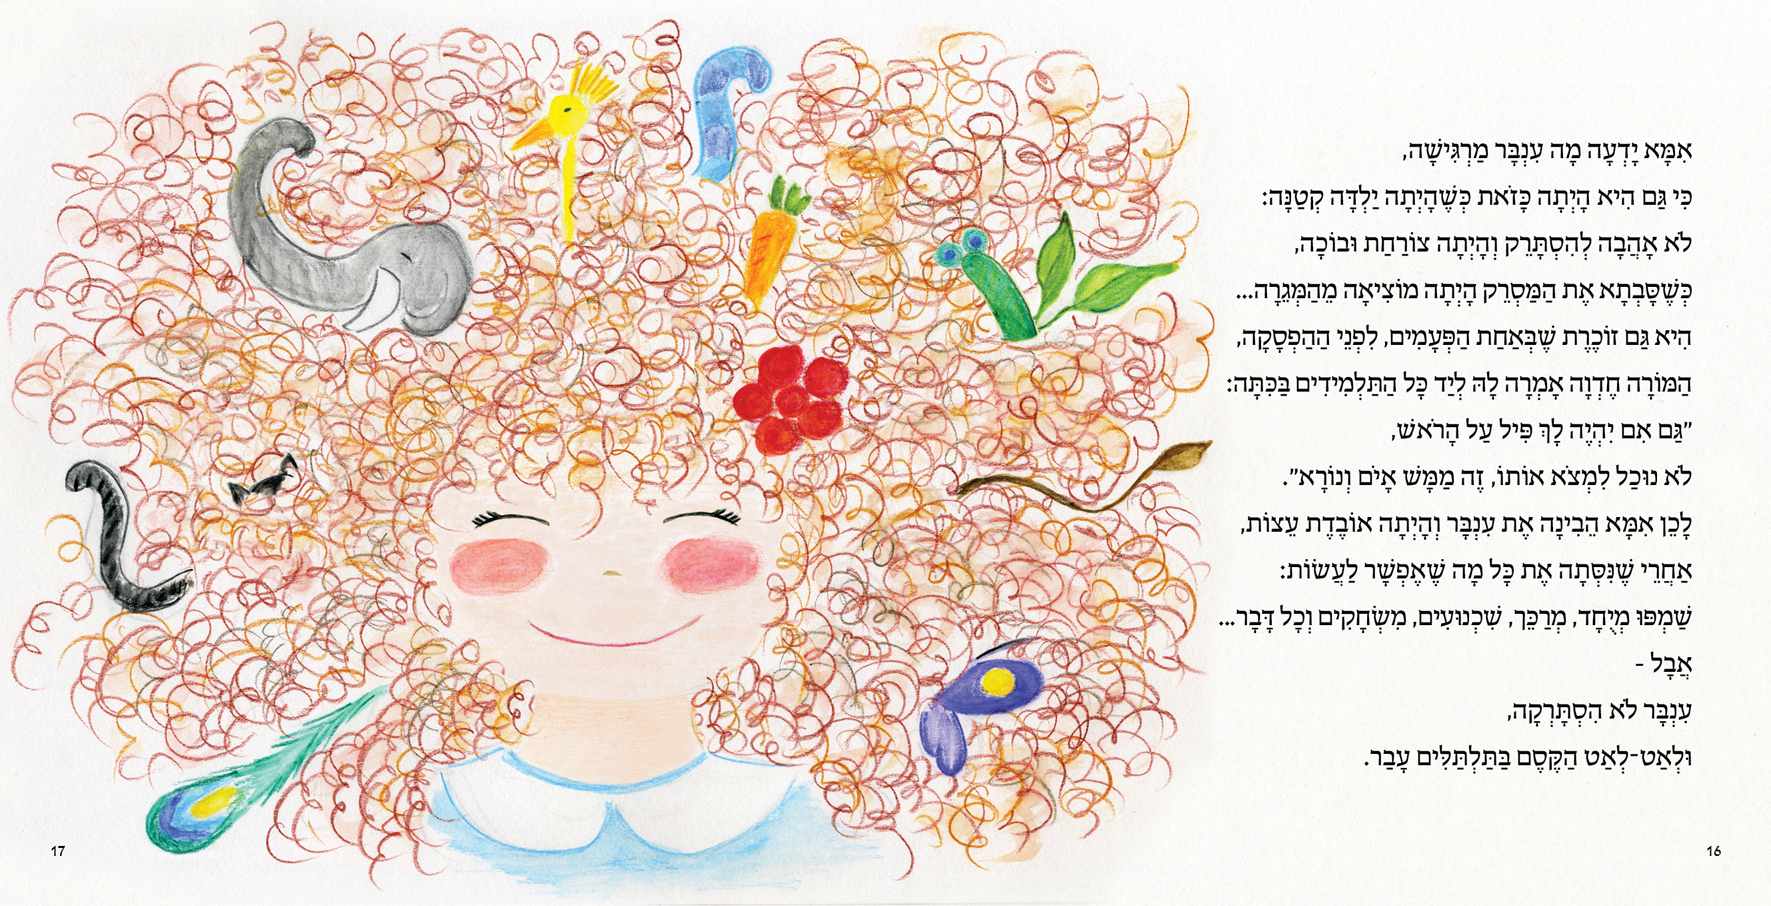 אִמָּא יָדְעָה מָה עִנְבָּר מַרְגִּישָׁה,
כִּי גַּם הִיא הָיְתָה כָּזֹאת כְּשֶׁהָיְתָה יַלְדָּה קְטַנָּה:
לֹא אָהֲבָה לְהִסְתָּרֵק וְהָיְתָה צוֹרַחַת וּבוֹכָה,
כְּשֶׁסָּבְתָא אֶת הַמַּסְרֵק הָיְתָה מוֹצִיאָה מֵהַמְּגֵרָה...
הִיא גַּם זוֹכֶרֶת שֶׁבְּאַחַת הַפְּעָמִים, לִפְנֵי הַהַפְסָקָה,
הַמּוֹרָה חֶדְוָה אָמְרָה לָהּ לְיַד כָּל הַתַּלְמִידִים בַּכִּתָּה:
"גַּם אִם יִהְיֶה לָךְ פִּיל עַל הָרֹאשׁ,
לֹא נוּכַל לִמְצֹא אוֹתוֹ, זֶה מַמָּשׁ אָיֹם וְנוֹרָא".
לָכֵן אִמָּא הֵבִינָה אֶת עִנְבָּר וְהָיְתָה אוֹבֶדֶת עֵצוֹת,
אַחֲרֵי שֶׁנִּסְּתָה אֶת כָּל מָה שֶׁאֶפְשָׁר לַעֲשׂוֹת:
שַׁמְפּוּ מְיֻחָד, מְרַכֵּךְ, שִׁכְנוּעִים, מִשְׂחָקִים וְכָל דָּבָר...
אֲבָל -
עִנְבָּר לֹא הִסְתָּרְקָה,
וּלְאַט-לְאַט הַקֶּסֶם בַּתַּלְתַּלִּים עָבַר.
16
17